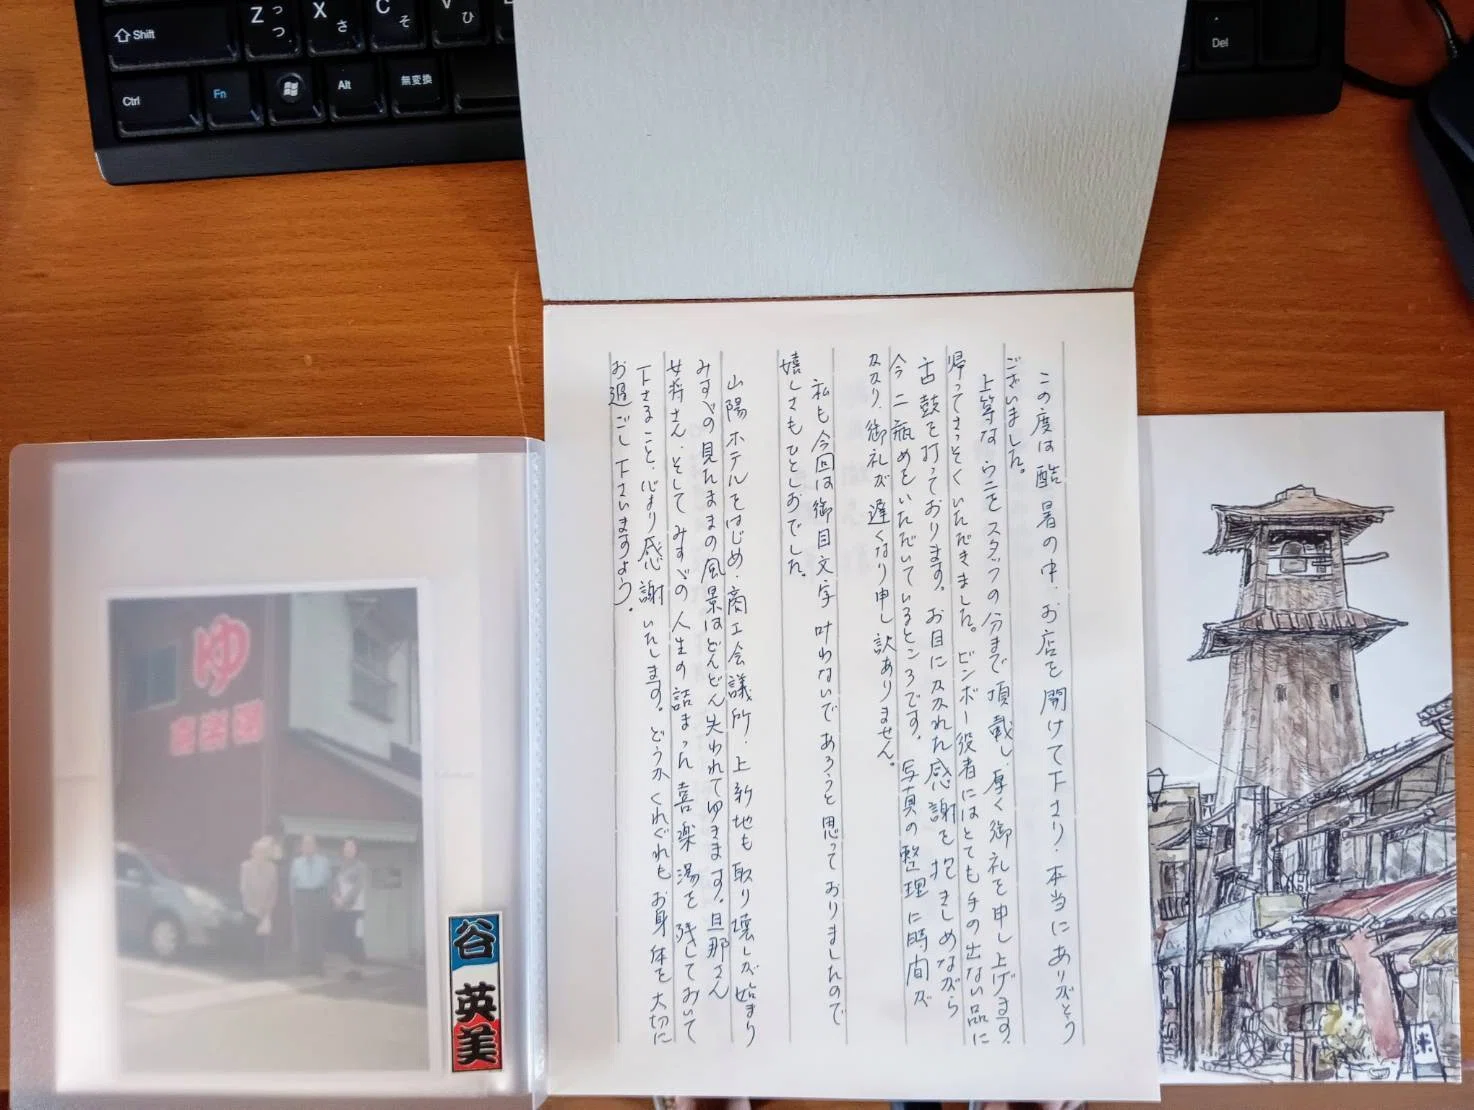 Shift
Z
つ
っ
X
さ
C
そ
V
ひ
Ctrl
Fn
Alt
無変換
.
Del
この度は酷暑の中、お店を開けて下さり、本当にありがとう
ございました。
上等なウニをスタッフの分まで頂戴し、厚く御礼を申し上げます。
帰ってさっそくいただきました。ビンボー役者にはとても手の出ない品に
舌鼓を打っております。お目に及れた感謝を抱きしめながら
今二瓶めをいただいているところです。写真の整理に時間が
及り、御礼が遅くなり申し訳ありません。
私も今回は御目文字叶わないであろうと思っておりましたので
嬉しさもひとしおでした。
山陽ホテルをはじめ、商工会議所、上新地も取り壊しが始まり
みすゞの見たままの風景はどんどん失われてゆきます。旦那さん
女将さん、そしてみすゞの人生の詰まった喜楽湯を残しておいて
下さること、心より感謝いたします。どうかくれぐれもお身体を大切に
お過ごし下さいますよう。
ゆ
喜楽湯
谷英美
米